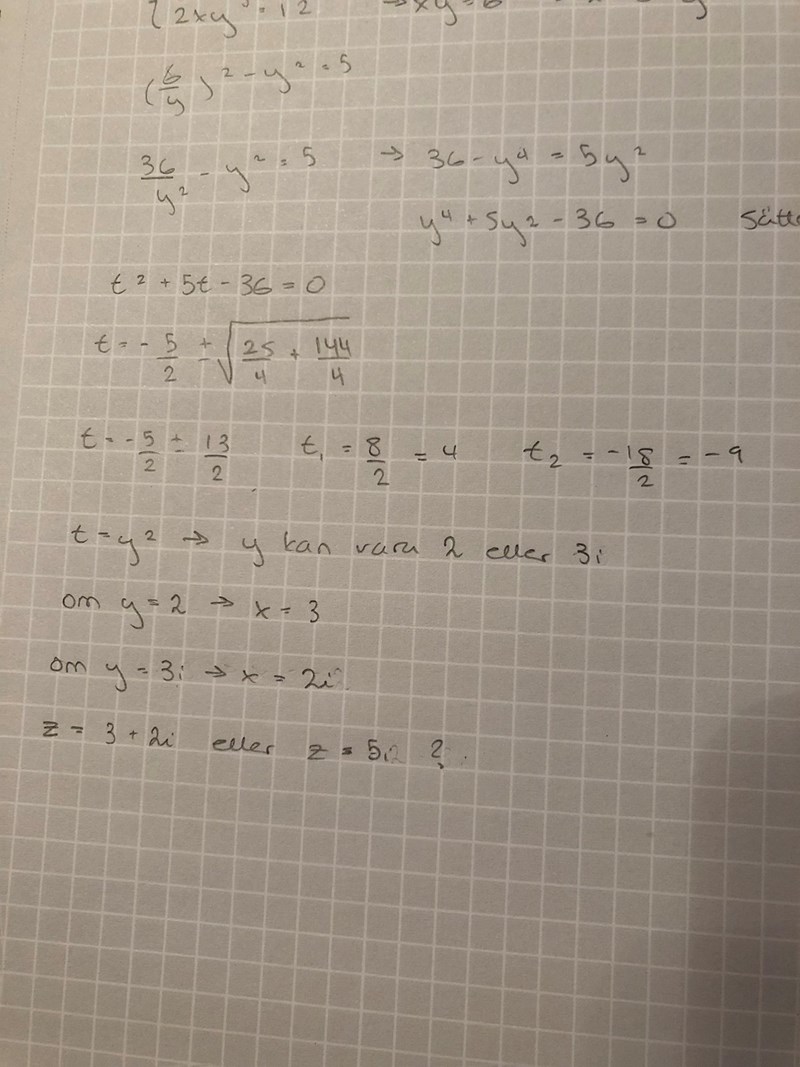 { 2xy = 12 → xy = 6
(6/y)² - y² = 5
36/y² - y² = 5 → 36 - y⁴ = 5y²
y⁴ + 5y² - 36 = 0
t² + 5t - 36 = 0
t = - 5/2 ± √(25/4 + 144/4)
t = - 5/2 ± 13/2 t₁ = 8/2 = 4 t₂ = -18/2 = -9
t = y² → y kan vara 2 eller 3i
om y = 2 → x = 3
om y = 3i → x = 2i
z = 3 + 2i eller z = 5i ?